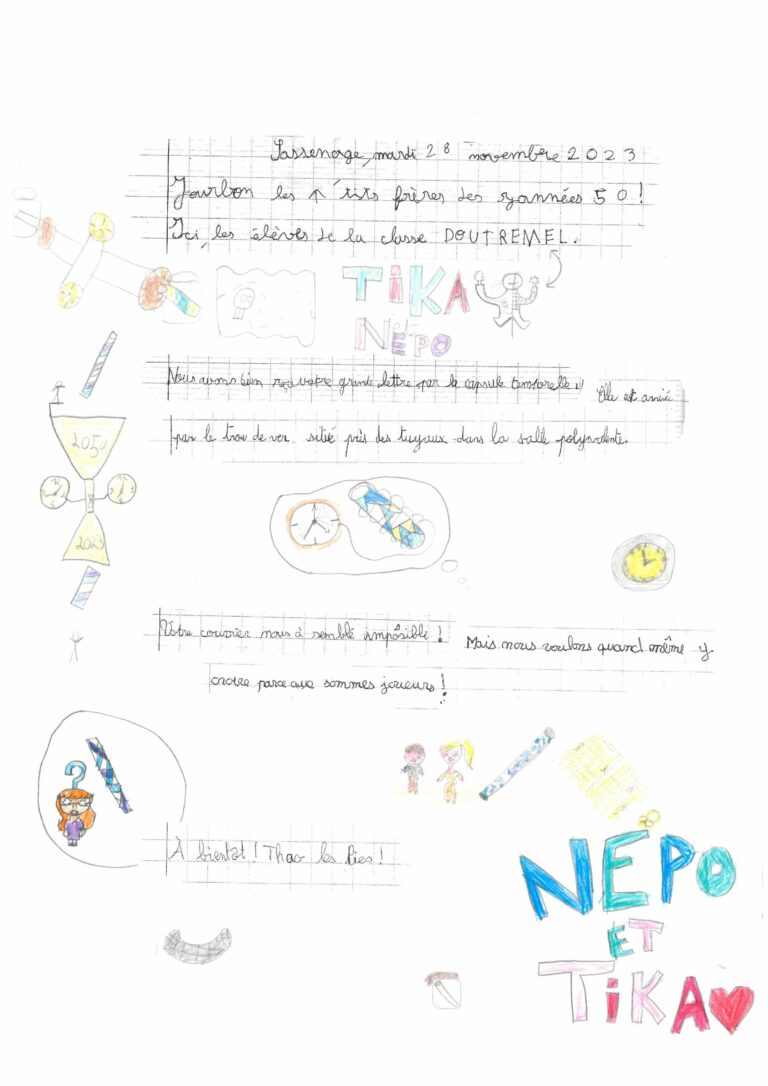 Sassenage, mardi 28 novembre 2023
Jourbon les ↑ 'tits frères des zannées 50 !
Ici, les élèves de la classe DOUTREMEL.
TiKA
et
NEPO
Nous avons bien reçu votre grande lettre par la capsule temporelle !! Elle est arrivée
par le trou de ver, situé près des tuyaux dans la salle polyvalente.
2050
2023
Votre courrier nous à semblé impôsible ! Mais nous voulons quand même y
croire parce que sommes joueurs !
?
À bientôt ! Thao les !
NEPO
ET
TiKA